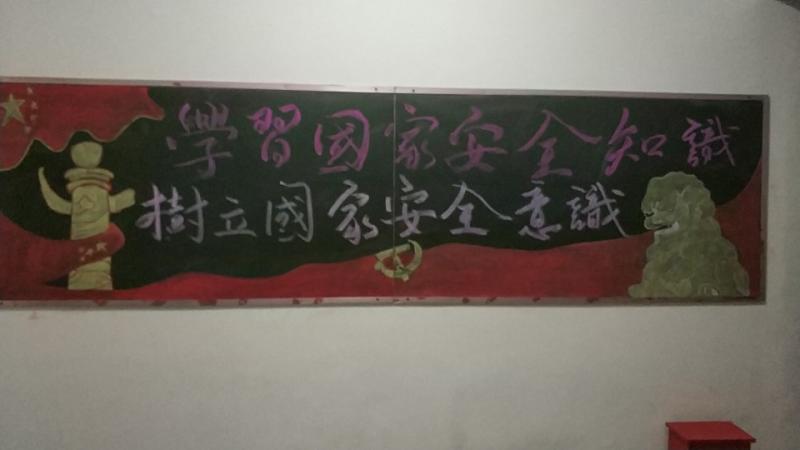 學習國家安全知識
樹立國家安全意識